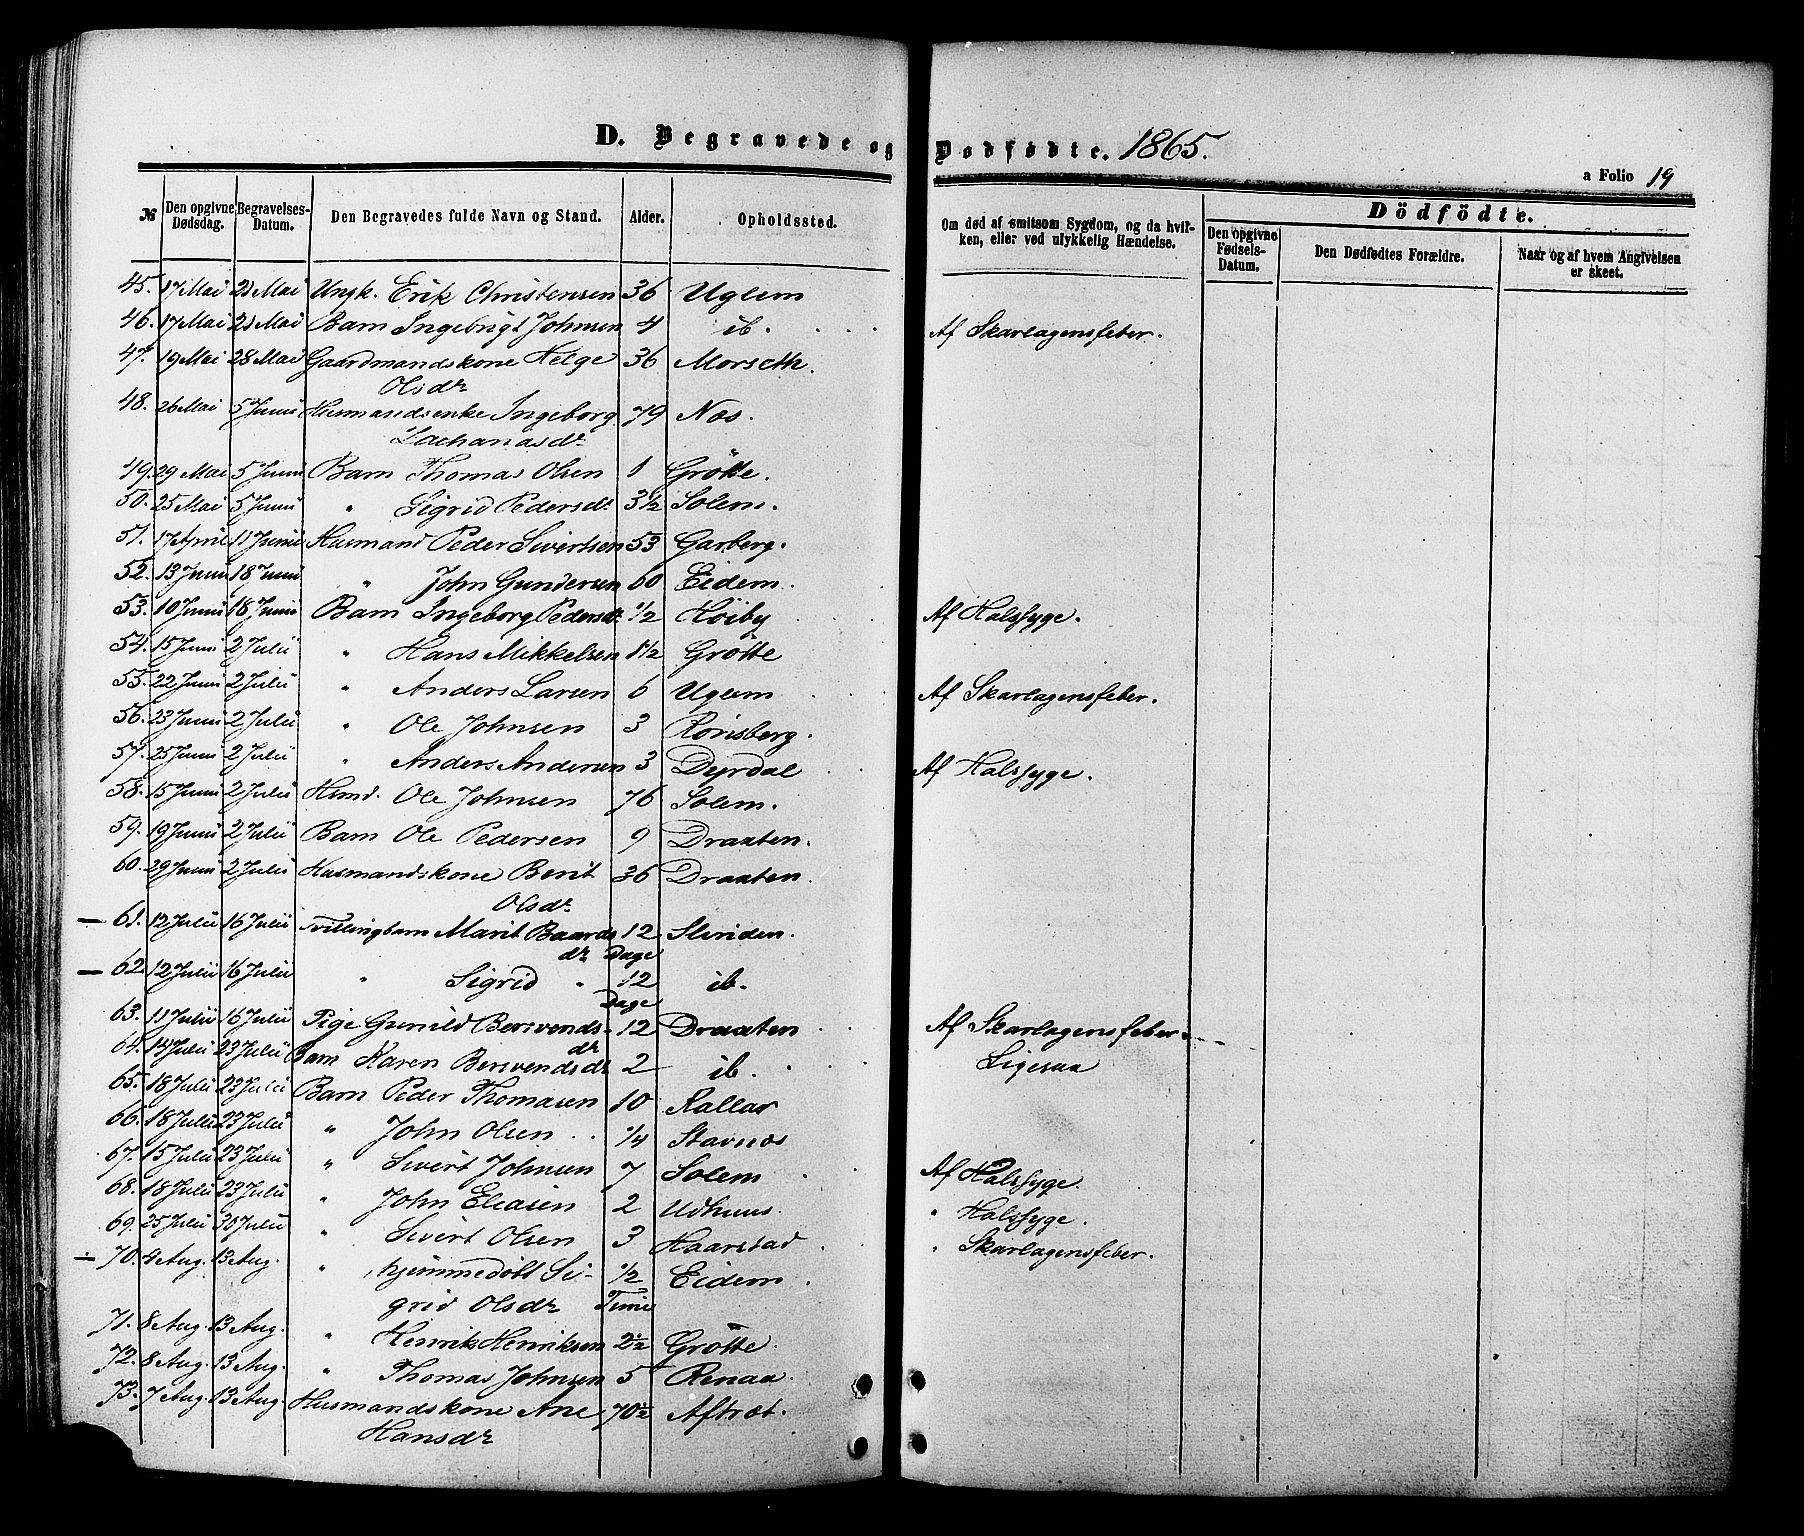 D. Begravede og Dødfödte. 1865.
a Folio 19
№ Den opgivne Dødsdag. Begravelses-Datum. Den Begravedes fulde Navn og Stand. Alder. Opholdssted. Om død af smitsom Sygdom, og da hvilken, eller ved ulykkelig Hændelse. Dödfödte.
Den opgivne Fødsels-Datum. Den Dødfødtes Forældre. Naar og af hvem Angivelsen er skeet.
45. 17 Mai 21 Mai Ungk. Erik Christensen 36 Uglem
46. 17 Mai 21 Mai Barn Ingebrigt Johnsen 4 ib. Af Skarlagensfeber.
47. 19 Mai 28 Mai Gaardmandskone Helge 36 Morseth.
Olsdr
48. 26 Mai 5 Juni Husmandsenke Ingeborg 79 Næs.
Zachariasdr
49. 29 Mai 5 Juni Barn Thomas Olsen 1 Grøtte.
50. 25 Mai 5 Juni " Sigrid Pedersdr 3 1/2 Solem.
51. 17 April 11 Junii Husmand Peder Sivertsen 53 Garberg.
52. 13 Juni 18 Juni " John Gundersen 60 Eidem.
53. 10 Juni 18 Juni Barn Ingeborg Pedersdr 1/2 Høiby Af Halssyge.
54. 15 Juni 2 Julii " Hans Mikkelsen 1 1/2 Grøtte
55. 22 Juni 2 Julii " Anders Larsen 6 Uglem Af Skarlagensfeber.
56. 23 Juni 2 Julii " Ole Johnsen 3 Rønsberg.
57. 25 Juni 2 Julii " Anders Andersen 3 Dyrdal Af Halssyge.
58. 15 Juni 2 Julii Husmd. Ole Johnsen 76 Solem.
59. 19 Juni 2 Julii Barn Ole Pedersen 9 Draxten.
60. 29 Juni 2 Julii Husmandskone Berit 36 Draxten.
Olsdr
61. 12 Julii 16 Julii Tvillingbarn Marit Baards 12 Slinden.
dr Dage
62. 12 Julii 16 Julii " Sigrid " 12 ib.
Dage
63. 11 Julii 16 Julii Pige Gunild Bersvends- 12 Draxten Af Skarlagensfeber.
dr
64. 14 Julii 23 Julii Barn Karen Bersvendsdr 2 ib. Ligesaa
65. 18 Julii 23 Julii Barn Peder Thomasen 10 Rallar
66. 18 Julii 23 Julii " John Olsen 1/4 Stavnæs
67. 15 Julii 23 Julii " Sivert Johnsen 7 Solem Af Halssyge.
68. 18 Julii 23 Julii " John Eleasen 2 Udhuus. " Halssyge.
69. 25 Julii 30 Julii " Sivert Olsen 3 Haarstad " Skarlagensfeber.
70. 4 Aug. 13 Aug. " hjemmedöbt Si- 1/2 Eidem.
grid Olsdr Time
71. 8 Aug. 13 Aug. " Henrik Henriksen 2 1/2 Grøtte.
72. 8 Aug. 13 Aug. " Thomas Johnsen 5 Renaa.
73. 7 Aug. 13 Aug. Husmandskone Ane 70 1/2 Aftræt.
Hansdr